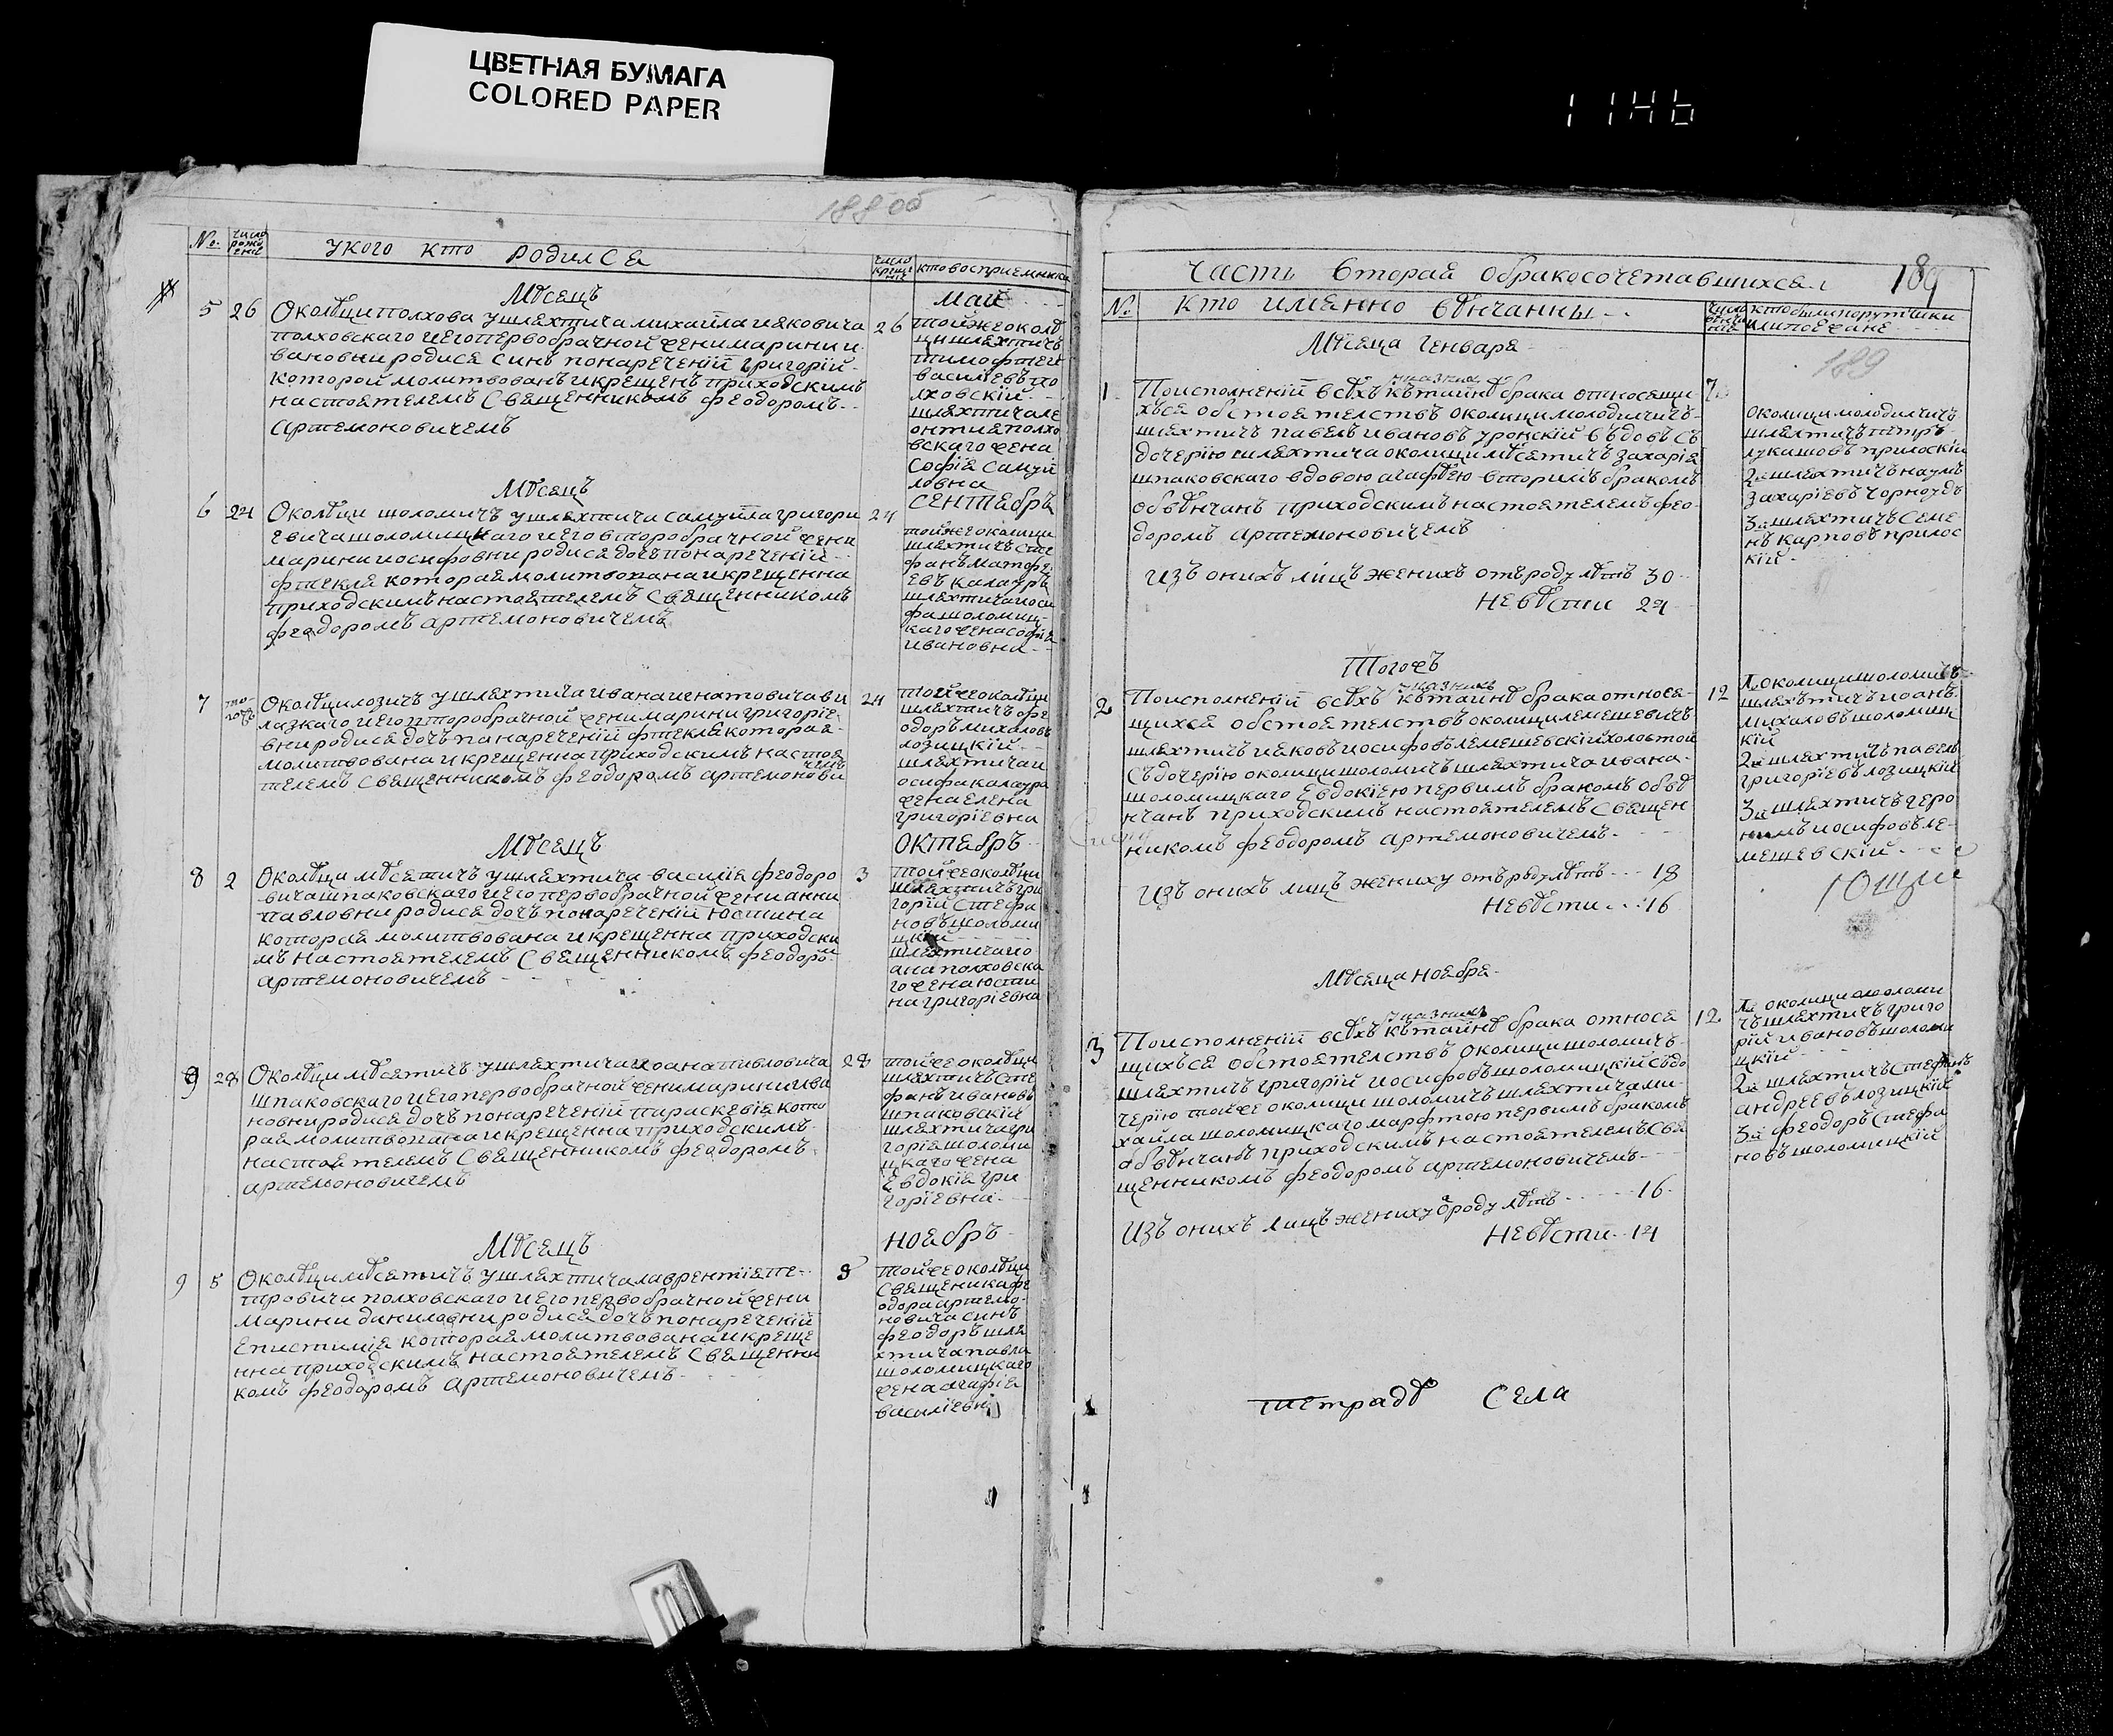 ЦВЕТНАЯ БУМАГА
COLORED PAPER
188 об
№ число рождение
У кого кто родилсѧ
число крещение
кто восприемники
Мѣсецъ
май
5 26
Околѣци Полхова у шляхтича Михайла Иаковича
Полховского и его первобрачной жени Марини И
вановни родисѧ синъ понаречениї Григорій
которой молитвованъ и крещенъ приходскимъ
настоятелемъ священникомъ Феодоромъ
Артемоновичемъ
26
той же околѣ
ци шляхтичъ
Тимофтей
Василіевъ По
лховскій
шляхтича Ле
онтия Полхо
вскаго жена
Софія Самуй
ловна
Мѣсецъ
сентябръ
6 24
Околѣци Шоломичъ у шляхтича Самуйла Григори
евича Шоломицкаго и его второбрачной жени
Марини Иосифовни родисѧ дочъ понаречениї
Фтекля которая молитвована и крещенна
приходскимъ настоятелемъ священникомъ
Феодоромъ Артемоновичемъ
24
той же околици
шляхтичъ Сте
фанъ Матфе
евъ Калауръ
шляхтича Иоси
фа Шоломиц
каго жена Софія
Ивановна
7 того жъ
Околѣци Лозичъ у шляхтича Ивана Игнатовича Ви
лазкаго и его второбрачной жени Марини Григоріе
вни родисѧ дочъ понаречениї Фтекля которая
молитвована и крещенна приходскимъ настоя
телемъ священникомъ Феодоромъ Артемонови
чемъ
24
той же околѣци
шляхтичъ Фе
одоръ Михаловъ
Лозицкій
шляхтича И
осифа Калаура
жена Елена
Григоріевна
Мѣсецъ
октябръ
8 2
Околѣци Мѣсятичъ у шляхтича Василія Феодоро
вича Шпаковского и его первобрачной жени Анни
Павловни родисѧ дочъ понаречениї Юстина
которая молитвована и крещенна приходски
мъ настоятелемъ священникомъ Феодоромъ
Артемоновичемъ
3
той же околѣци
шляхтичъ Гри
горій Стефа
новъ Шоломи
цкій
шляхтича Ио
ана Полховска
го жена Юсти
на Григоріевна
9 28
Околѣци Мѣсятичъ у шляхтича Иоана Павловича
Шпаковского и его первобрачной жени Марини Ива
новни родисѧ дочъ понаречениї Параскевія кото
рая молитвована и крещенна приходскимъ
настоятелемъ священникомъ Феодоромъ
Артемоновичемъ
28
той же околѣци
шляхтичъ Сте
фанъ Ивановъ
Шпаковскій
шляхтича Гри
горія Шоломи
цкаго жена
Евдокія Гри
горіевна
Мѣсецъ
ноябръ
9 5
Околѣци Мѣсятичъ у шляхтича Лаврентія Пе
тровича Полховского и его первобрачной жени
Марини Даниловни родисѧ дочъ понаречениї
Епистимія которая молитвована и креще
нна приходскимъ настоятелемъ священни
комъ Феодоромъ Артемоновичемъ
8
той же околѣци
священика Фе
одора Артемо
новича синъ
Феодоръ шля
хтича Павла
Шоломицкаго
жена Агафія
Василіевна
1146
Часть вторая о бракосочетавшихся
189
№ кто именно вѣнчанны
число вѣнчание
кто были порутчики или поежане
Мѣсеца генваря
189
1
По исполнениї всѣхъ указнихъ къ тайнѣ брака относящи
хъся обстоятелствъ околици Молодилчичъ
шляхтичъ Павелъ Ивановъ Уронскій вѣдовъ съ
дочерію шляхтича околици Мѣсятичъ Захарія
Шпаковского вдовою Агафѣею вторимъ бракомъ
обвѣнчанъ приходскимъ настоятелемъ Фео
доромъ Артемоновичемъ
7
околици Молодилчичъ
шляхтичъ Петръ
Лукашовъ Прилоскій
2й шляхтичъ Наумъ
Захаріевъ
3й шляхтичъ Семе
нъ Карповъ Прилос
кій
Изъ онихъ лицъ женихъ отъ роду лѣтъ 30
Невѣсти 24
Тогожъ
2
По исполнениї всѣхъ указнихъ къ тайнѣ брака относя
щихся обстоятелствъ околици Лемешевичъ
шляхтичъ Иаковъ Иосифовъ Лемешевскій холостой
съ дочерію околици Шоломичъ шляхтича Ивана
Шоломицкаго Евдокіею первимъ бракомъ обвѣ
нчанъ приходскимъ настоятелемъ священ
никомъ Феодоромъ Артемоновичемъ
12
1й околици Шоломичъ
шляхътичъ Иоанъ
Михаловъ Шоломиц
кій
2й шляхтичъ Павелъ
Григоріевъ Лозицкій
3й шляхтичъ Геро
нимъ Иосифовъ Ле
мешевскій
Изъ онихъ лицъ жениху отъ роду лѣтъ 18
Невѣсти 16
Мѣсеца ноября
3
По исполнениї всѣхъ указнихъ къ тайнѣ брака относя
щихъся обстоятелствъ околици Шоломичъ
шляхтичъ Григорій Иосифовъ Шоломицкій съ до
черію той же околици Шоломичъ шляхтича Ми
хаила Шоломицкаго Марфтою первимъ бракомъ
обвѣнчанъ приходскимъ настоятелемъ свя
щенникомъ Феодоромъ Артемоновичемъ
12
1й околици Шоломи
чъ шляхтичъ Григо
рій Ивановъ Шоломи
цкій
2й шляхтичъ Стефанъ
Андреевъ Лозицкій
3й Феодоръ Стефа
новъ Шоломицкій
Изъ онихъ лицъ жениху ороду лѣтъ 16
Невѣсти 14
тетрадѣ села